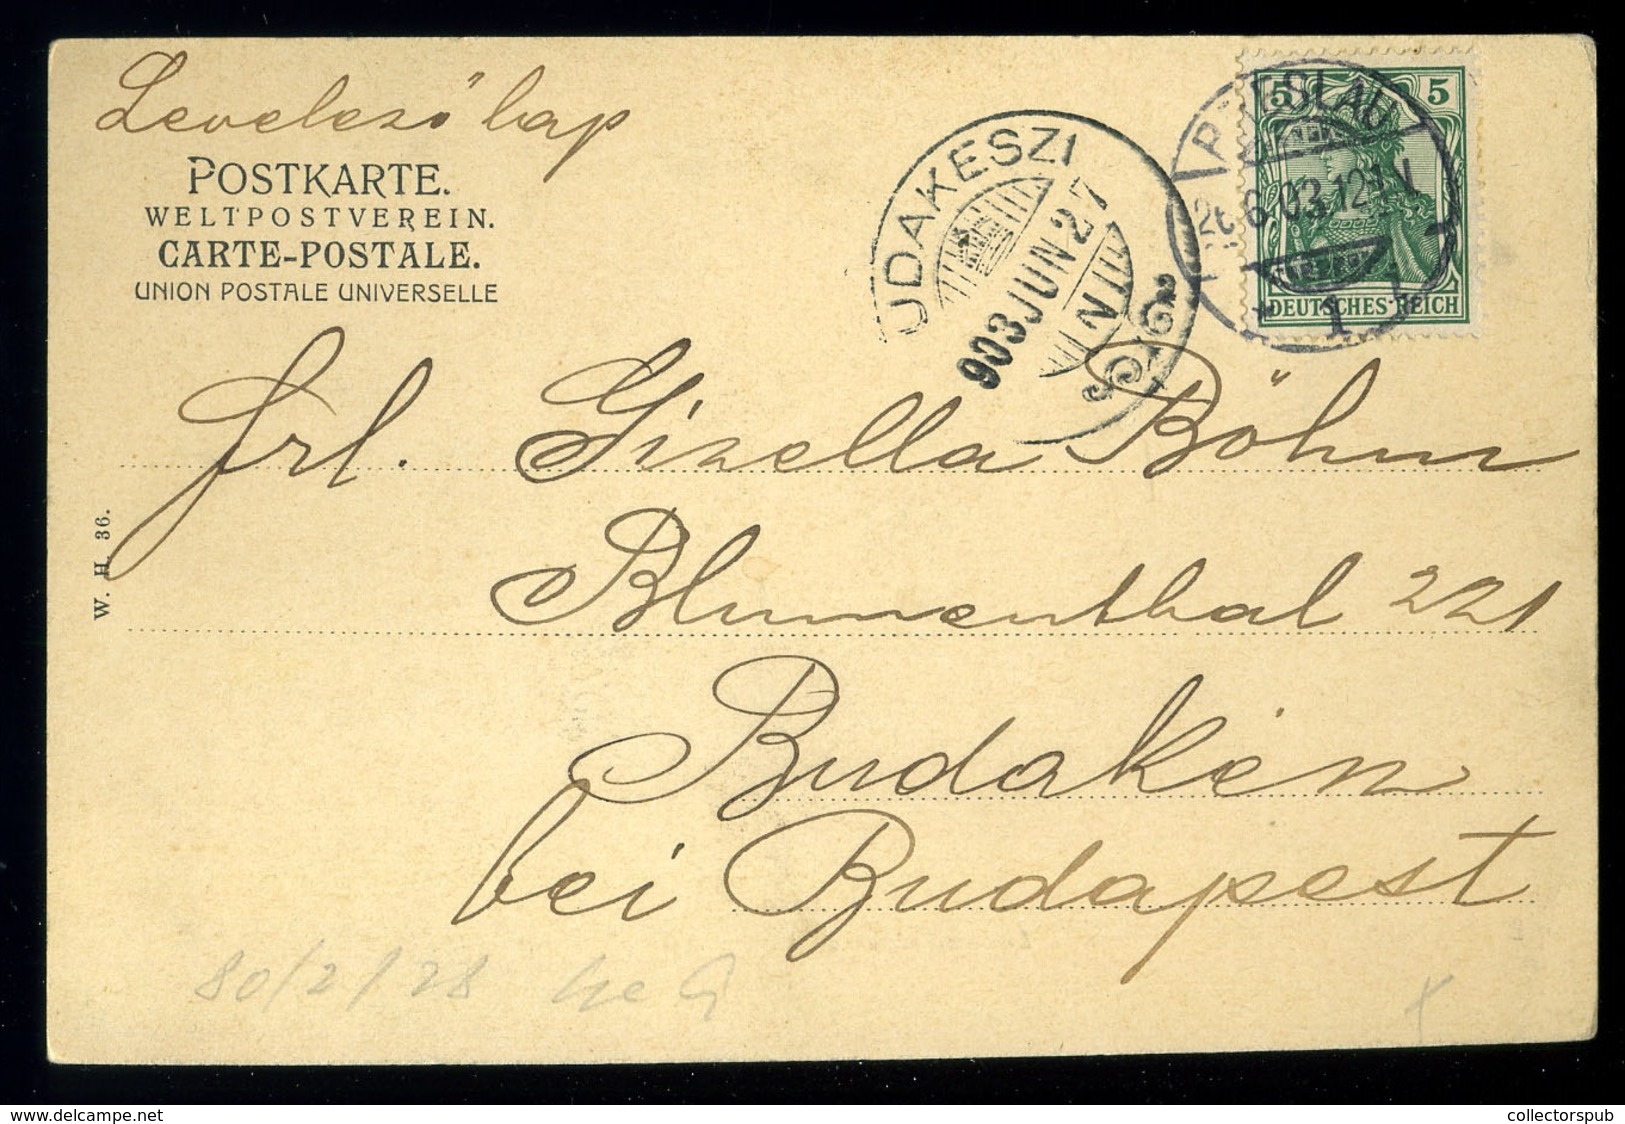 Levelező lap
POSTKARTE.
WELTPOSTVEREIN.
CARTE-POSTALE.
UNION POSTALE UNIVERSELLE
UDAKESZI
903 JUN 27
N
BRESLAU
26.6.03.12-1V
* 1
5 5
DEUTSCHES REICH
Frl. Gizella Böhm
Blumenthal 221
Budakín
bei Budapest
W. H. 36.
80/2/28
www.darabanth.com
collectorspub